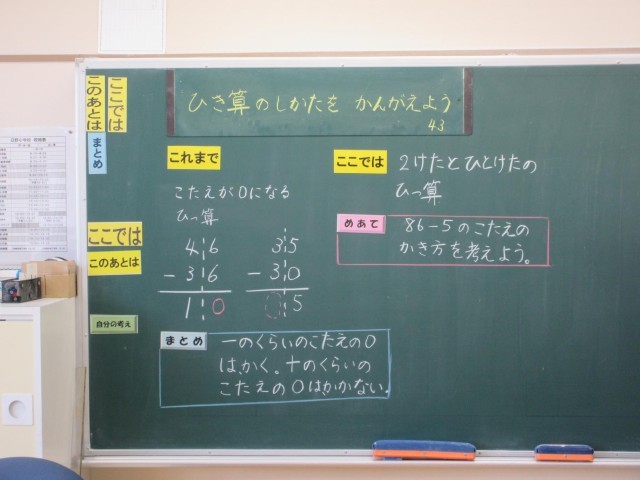 ひき算のしかたを かんがえよう
43
ここでは
このあとは
まとめ
ここでは
このあとは
自分の考え
これまで
こたえが0になる
ひっ算
46
-36
10
35
-30
5
まとめ
一のくらいのこたえの0
は、かく。十のくらいの
こたえの0は、かかない。
ここでは
2けたとひとけたの
ひっ算
めあて
86-5のこたえの
かき方を考えよう。